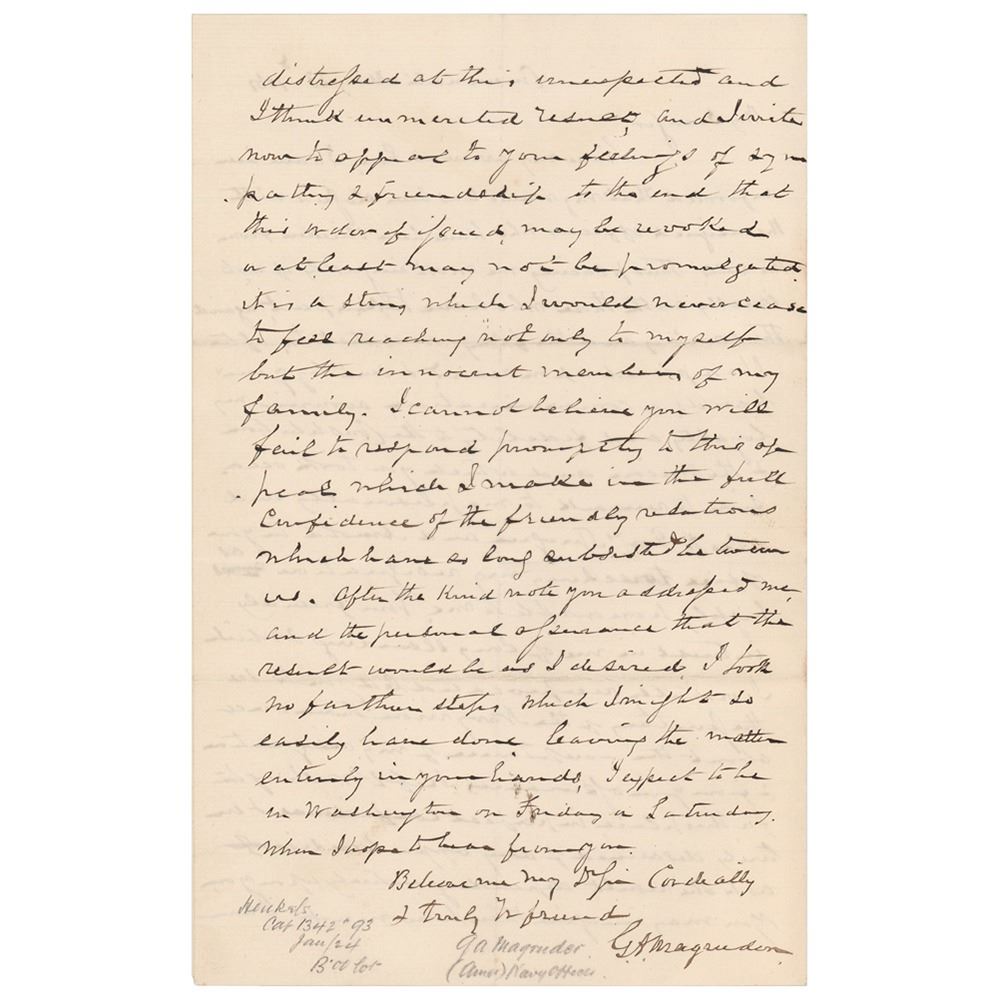 distressed at this unexpected and
I think unmerited result, and I write
now to appeal to your feelings of sym
pathy & friendship to the end that
this order if issued, may be revoked
or at least may not be promulgated
it is a sting which I would never cease
to feel reaching not only to myself
but the innocent members of my
family. I cannot believe you will
fail to respond promptly to this ap
peal which I make in the full
Confidence of the friendly relations
which have so long subsisted between
us. After the kind note you addressed me,
and the personal assurance that the
result would be as I desired, I took
no further steps which I might so
easily have done leaving the matter
entirely in your hands, I expect to be
in Washington on Friday or Saturday.
when I hope to hear from you.
Believe me My Dr Sir Cordially
& truly Yr friend
G A Magruder
Henkels
Cat 1342 "93
Jan/24
B'ot lot
G A Magruder
(Amer) Navy Officer